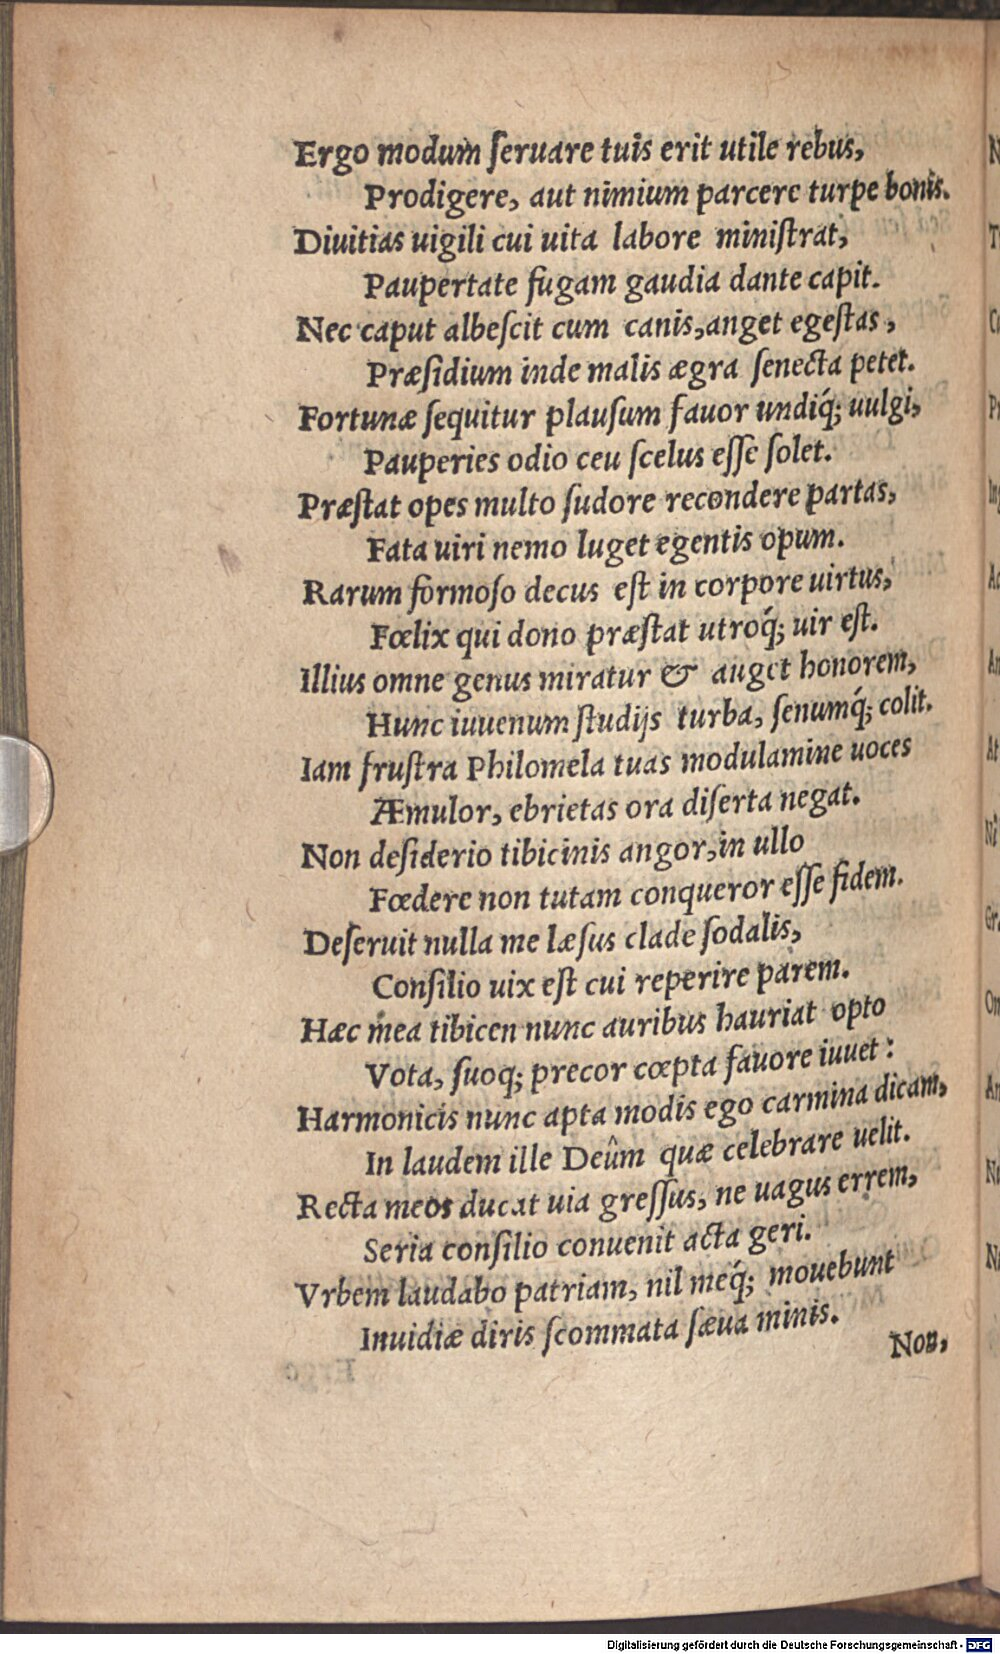 Ergo modum ſeruare tuis erit utile rebus,
Prodigere, aut nimium parcere turpe bonis.
Diuitias uigili cui uita labore miniſtrat,
Paupertate fugam gaudia dante capit.
Nec caput albeſcit cum canis, anget egeſtas,
Præſidium inde malis ægra ſenecta petet.
Fortunæ ſequitur plauſum fauor undiq́; uulgi,
Pauperies odio ceu ſcelus eſſe ſolet.
Præſtat opes multo ſudore recondere partas,
Fata uiri nemo luget egentis opum.
Rarum formoſo decus eſt in corpore uirtus,
Fœlix qui dono præſtat utroq́; uir eſt.
Illius omne genus miratur & auget honorem,
Hunc iuuenum ſtudijs turba, ſenumq́; colit.
Iam fruſtra Philomela tuas modulamine uoces
Æmulor, ebrietas ora diſerta negat.
Non deſiderio tibicinis angor, in ullo
Fœdere non tutam conqueror eſſe fidem.
Deſeruit nulla me læſus clade ſodalis,
Conſilio uix eſt cui reperire parem.
Hæc mea tibicen nunc auribus hauriat opto
Vota, ſuoq; precor cœpta fauore iuuet:
Harmonicis nunc apta modis ego carmina dicam,
In laudem ille Deûm quæ celebrare uelit.
Recta meos ducat uia greſſus, ne uagus errem,
Seria conſilio conuenit acta geri.
Vrbem laudabo patriam, nil meq́; mouebunt
Inuidiæ diris ſcommata ſæua minis.
Non,
Digitalisierung gefördert durch die Deutsche Forschungsgemeinschaft - DFG